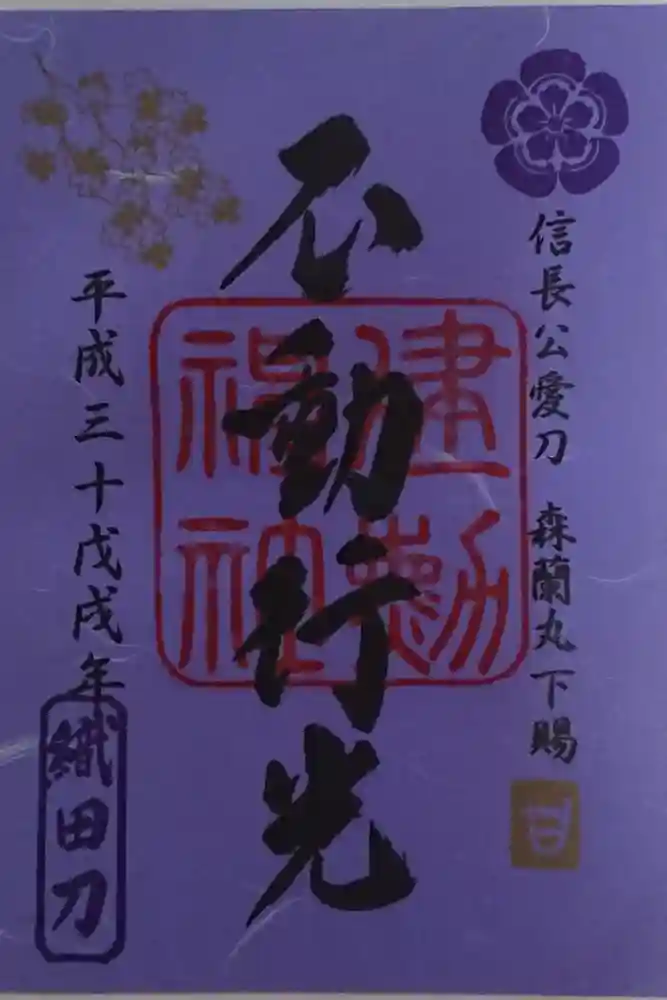 信長公愛刀　森蘭丸下賜
不動行光
建勲
福社
平成三十戊戌年
織田刀